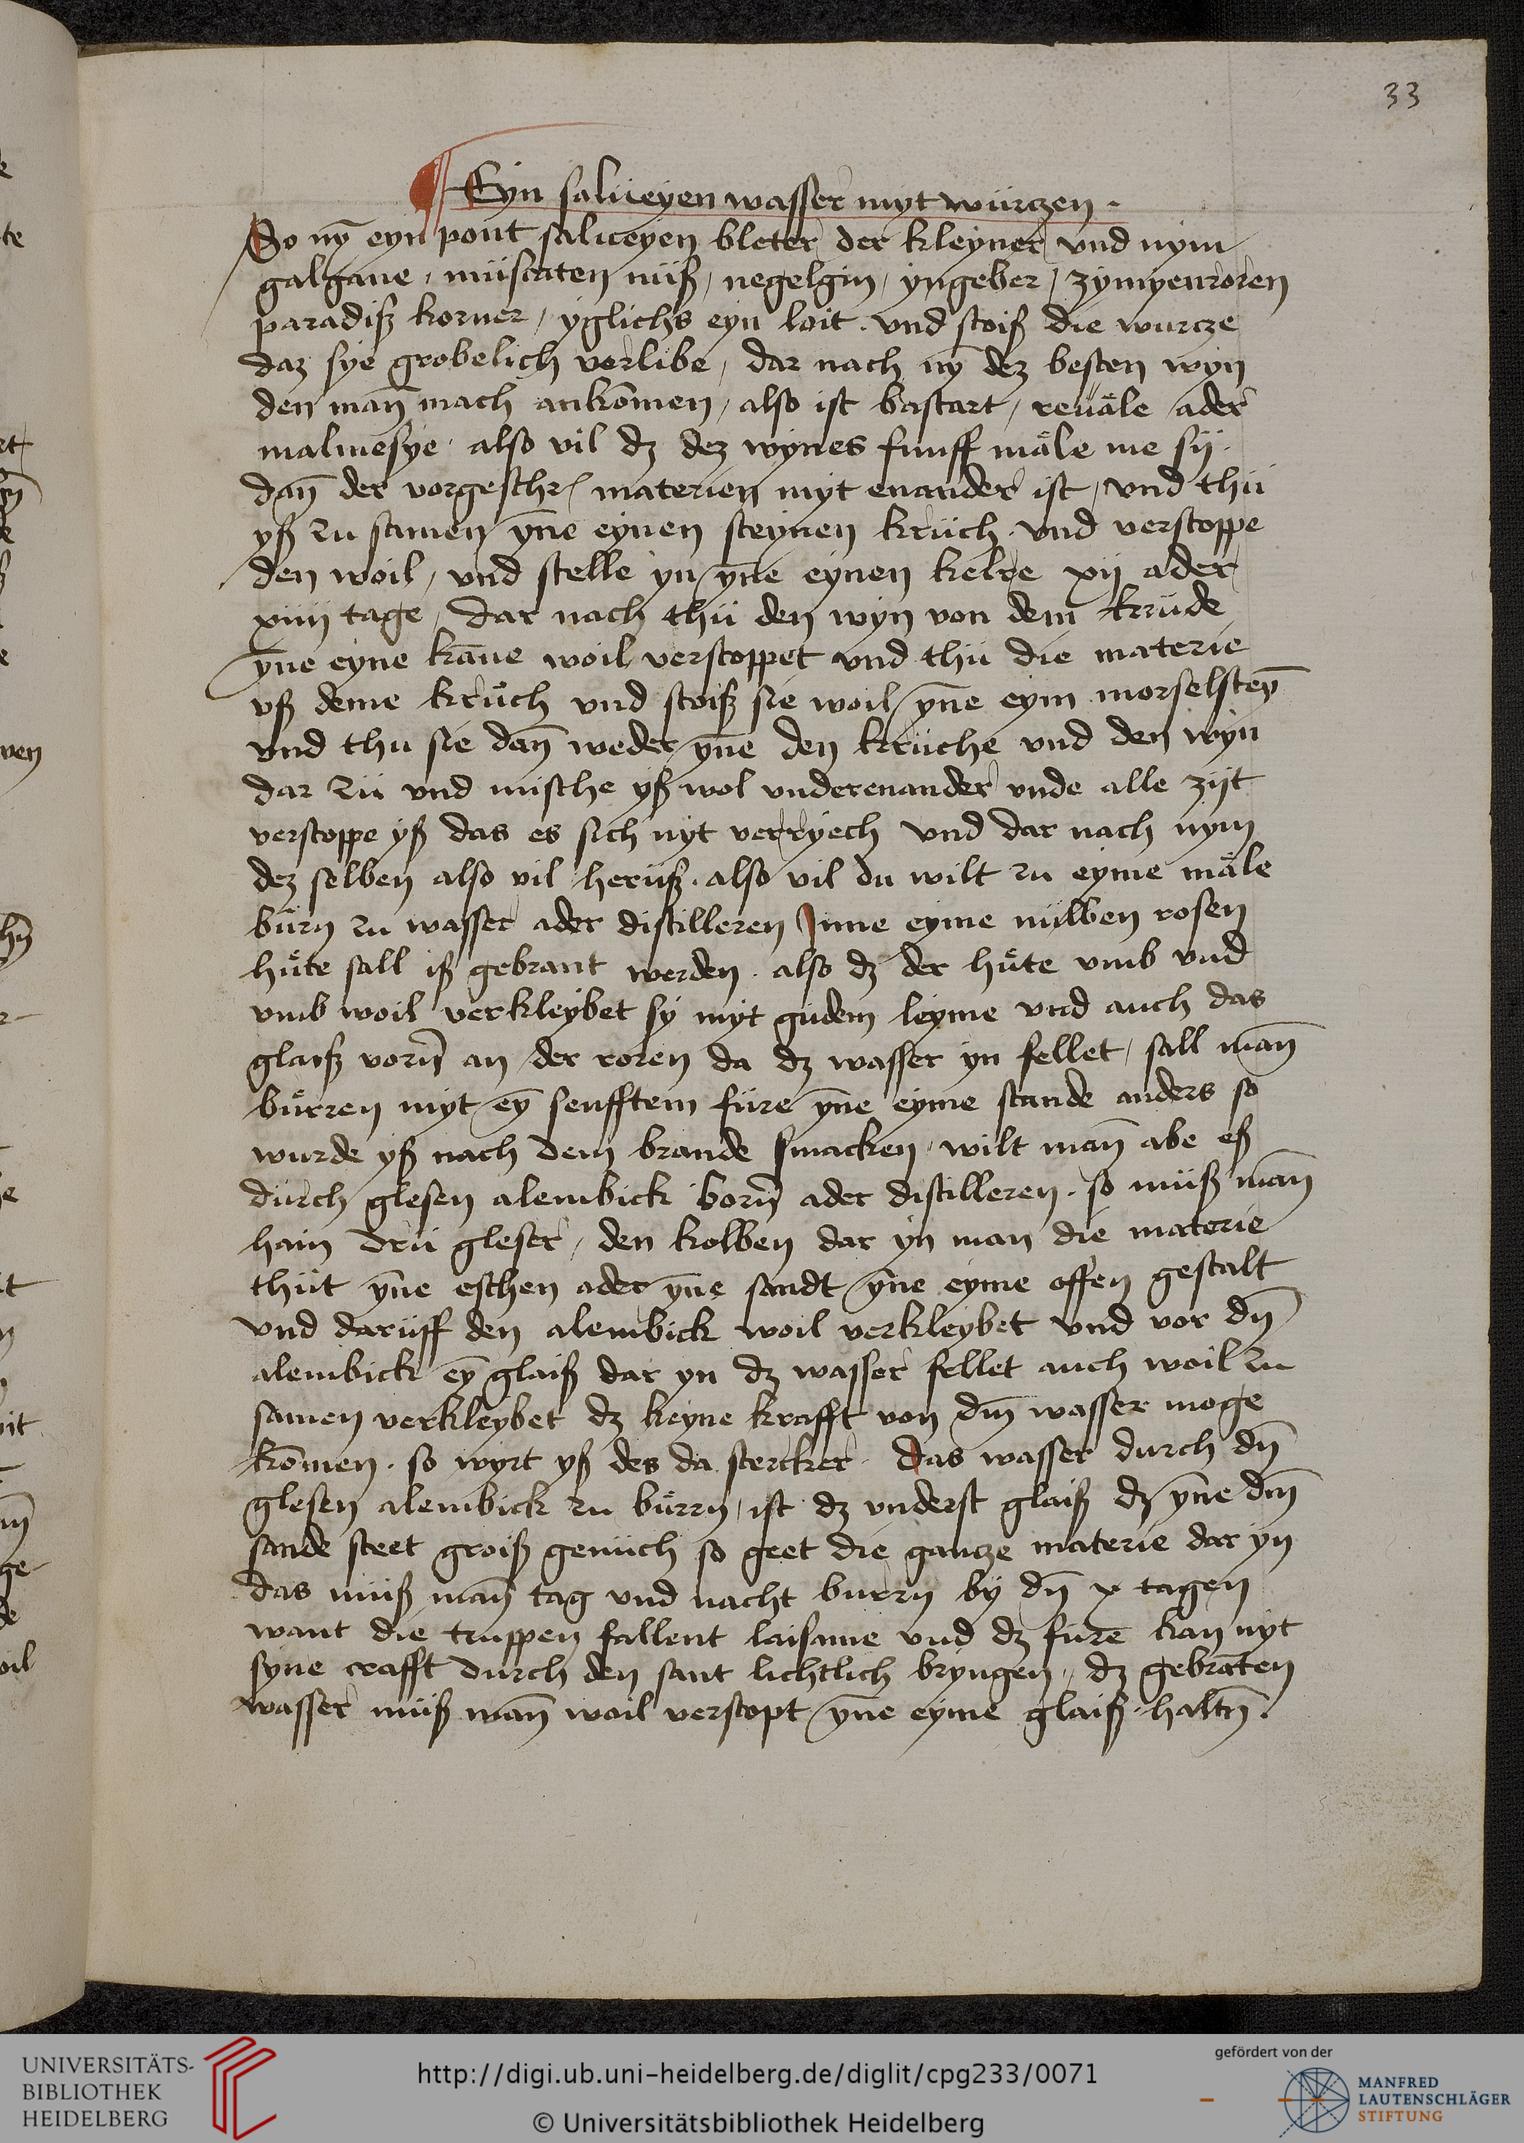 33
Eyn salueyen wasser myt würczen .
So nȳ eyn pont salueyen bleter der kleyner vnd nym
galgane / müscaten nüß / negelgin / yngeber / zymyenroren
paradiß korner / yglichs eyn loit . vnd stoiß die wurcze
daz sye grobelich verlibe / dar nach nȳ dez besten wyn
den man̄ mach ankōmen / also ist bastart / reuale ader
malmesye . also vil dz dez wynes funff male me sij .
dan̄ der vorgeschr materien myt enander ist / vnd thü
yß zu samen yn̄e eynen steynen krüch . vnd verstoppe
den woil / vnd stelle yn yn̄e eynen kelre xij ader
xiiij tage / dar nach thü den wyn von dem krüde
yn̄e eyne kan̄e woil verstoppet vnd thü die materie
vß deme krüch vnd stoiß sie woil yn̄e eym morselsteȳ
vnd thu sie dan̄ weder yn̄e den krüche vnd den wyn
dar zü vnd mische yß wol vnderenander vnde alle zijt
verstoppe yß das es sich nyt verryech vnd dar nach nym
dez selben also vil herüß . also vil du wilt zu eyme male
bürn zu wasser ader distilleren Jnne eyme nülben rosen
hüte sall iß gebrant werden . also dz der hüte vmb vnd
vmb woil verkleybet sy myt güdem leyme vnd auch das
glaiß vorn̄ an der roren da dz wasser yn fellet / sall man̄
bürren myt eȳ senfftem füre yn̄e eyme stande anders so
wurde yß nach dem brande smacken / wilt man̄ abe eß
dürch glesen alembick born̄ ader distilleren . so müß man̄
hain drü gleser / den kolben dar yn man die materie
thüt yn̄e eschen ader yn̄e sandt yn̄e eyme offen gestalt
vnd darüff den alembick woil verkleybet vnd vor dn̄
alembick eȳ glaiß dar yn dz wasser fellet auch woil zu
samen verkleybet dz keyne krafft von dm̄ wasser moge
kōmen . so wyrt yß des da stercker . das wasser durch dn̄
glesen alembick zu bürrn / ist dz vnderst glaiß dz yn̄e dm̄
sande steet groiß genüch so geet die gancze materie dar yn
das müß man̄ tag vnd nacht burrn by dn̄ x tagen
want die truppen fallent laisame vnd dz fure kan nyt
syne crafft durch den sant lichtlich bryngen / dz gebrāten
wasser müß man̄ woil verstopt yn̄e eyme glaiß . haltn̄ .
UNIVERSITÄTS-
BIBLIOTHEK
HEIDELBERG
http://digi.ub.uni-heidelberg.de/diglit/cpg233/0071
© Universitätsbibliothek Heidelberg
gefördert von der
MANFRED
LAUTENSCHLÄGER
STIFTUNG